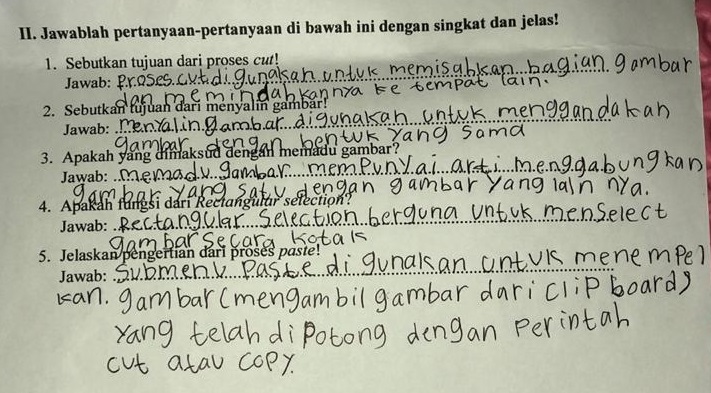 II. Jawablah pertanyaan-pertanyaan di bawah ini dengan singkat dan jelas!
1. Sebutkan tujuan dari proses cut!
Jawab: Proses cut digunakan untuk memisahkan bagian gambar
dan memindahkannya ke tempat lain.
2. Sebutkan tujuan dari menyalin gambar!
Jawab: Menyalin gambar digunakan untuk menggandakan
gambar dengan bentuk yang sama
3. Apakah yang dimaksud dengan memadu gambar?
Jawab: memadu gambar mempunyai arti menggabungkan
gambar yang satu dengan gambar yang lain nya.
4. Apakah fungsi dari Rectangular selection?
Jawab: Rectangular Selection berguna untuk menselect
gambar secara kotak
5. Jelaskan pengertian dari proses paste!
Jawab: Submenu Paste di gunakan untuk menempel
kan. gambar (mengambil gambar dari clipboard)
yang telah dipotong dengan perintah
cut atau copy.